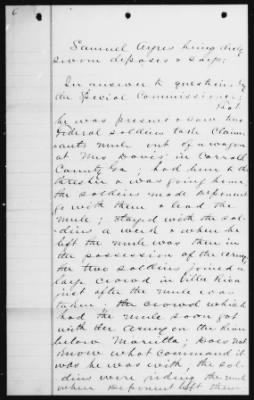 6
Samuel Ayres being duly
sworn deposes & says:
In answer to questions by
the Special Commissioner;
That
he was present & saw two
Federal soldiers take Claim-
ants mule out of a wagon
at Mrs Davis' in Carroll
County Ga; had been to the
& was going home
the soldiers made deponent
go with them & lead the
mule; stayed with the sol-
diers a week & when he
left the mule was then in
the possession of the army
the two soldiers joined a
large crowd in Villa Rica
just after the mule was
taken; the crowd which
had the mule soon got
with the army on the River
below Marietta; Does not
know what command it
was he was with; the sol-
diers were riding the mule
when deponent left them